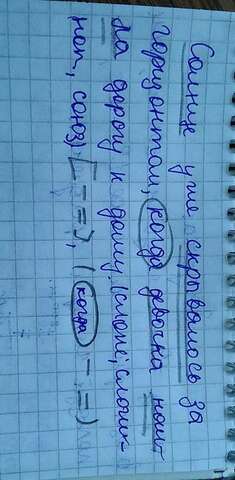 Солнце уже скрывалось за
горизонтом, когда девочка наш-
ла дорогу к дому. (сложн; слож-
ноп, союз) [- =], (когда - =)